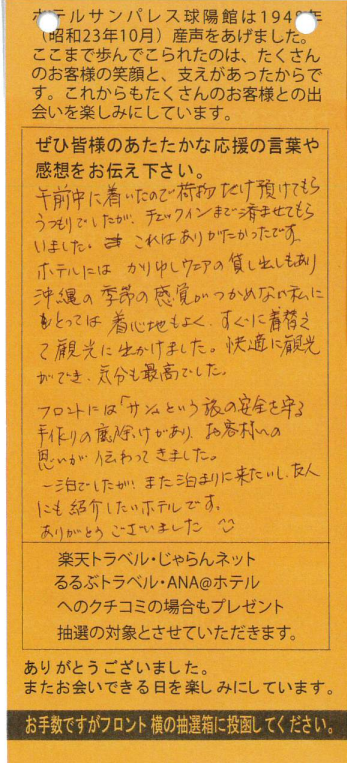 ホテルサンパレス球陽館は1948年
（昭和23年10月）産声をあげました。
ここまで歩んでこられたのは、たくさん
のお客様の笑顔と、支えがあったからで
す。これからもたくさんのお客様との出
会いを楽しみにしています。
ぜひ皆様のあたたかな応援の言葉や
感想をお伝え下さい。
午前中に着いたので荷物だけ預けてもら
うつもりでしたが、チェックインまで済ませてもら
いました。これはありがたかったです。
ホテルには かりゆしウェアの貸し出しもあり
沖縄の季節の感覚がつかめない私に
とっては 着心地もよく、すぐに着替え
て観光に出かけました。快適に観光
ができ、気分も最高でした。
フロントには「サン」という旅の安全を守る
手作りの魔除けがあり、お客様への
思いが伝わってきました。
一泊でしたが、また泊まりに来たいし、友人
にも紹介したいホテルです。
ありがとうございました
楽天トラベル・じゃらんネット
るるぶトラベル・ANA@ホテル
へのクチコミの場合もプレゼント
抽選の対象とさせていただきます。
ありがとうございました。
またお会いできる日を楽しみにしています。
お手数ですがフロント横の抽選箱に投函してください。